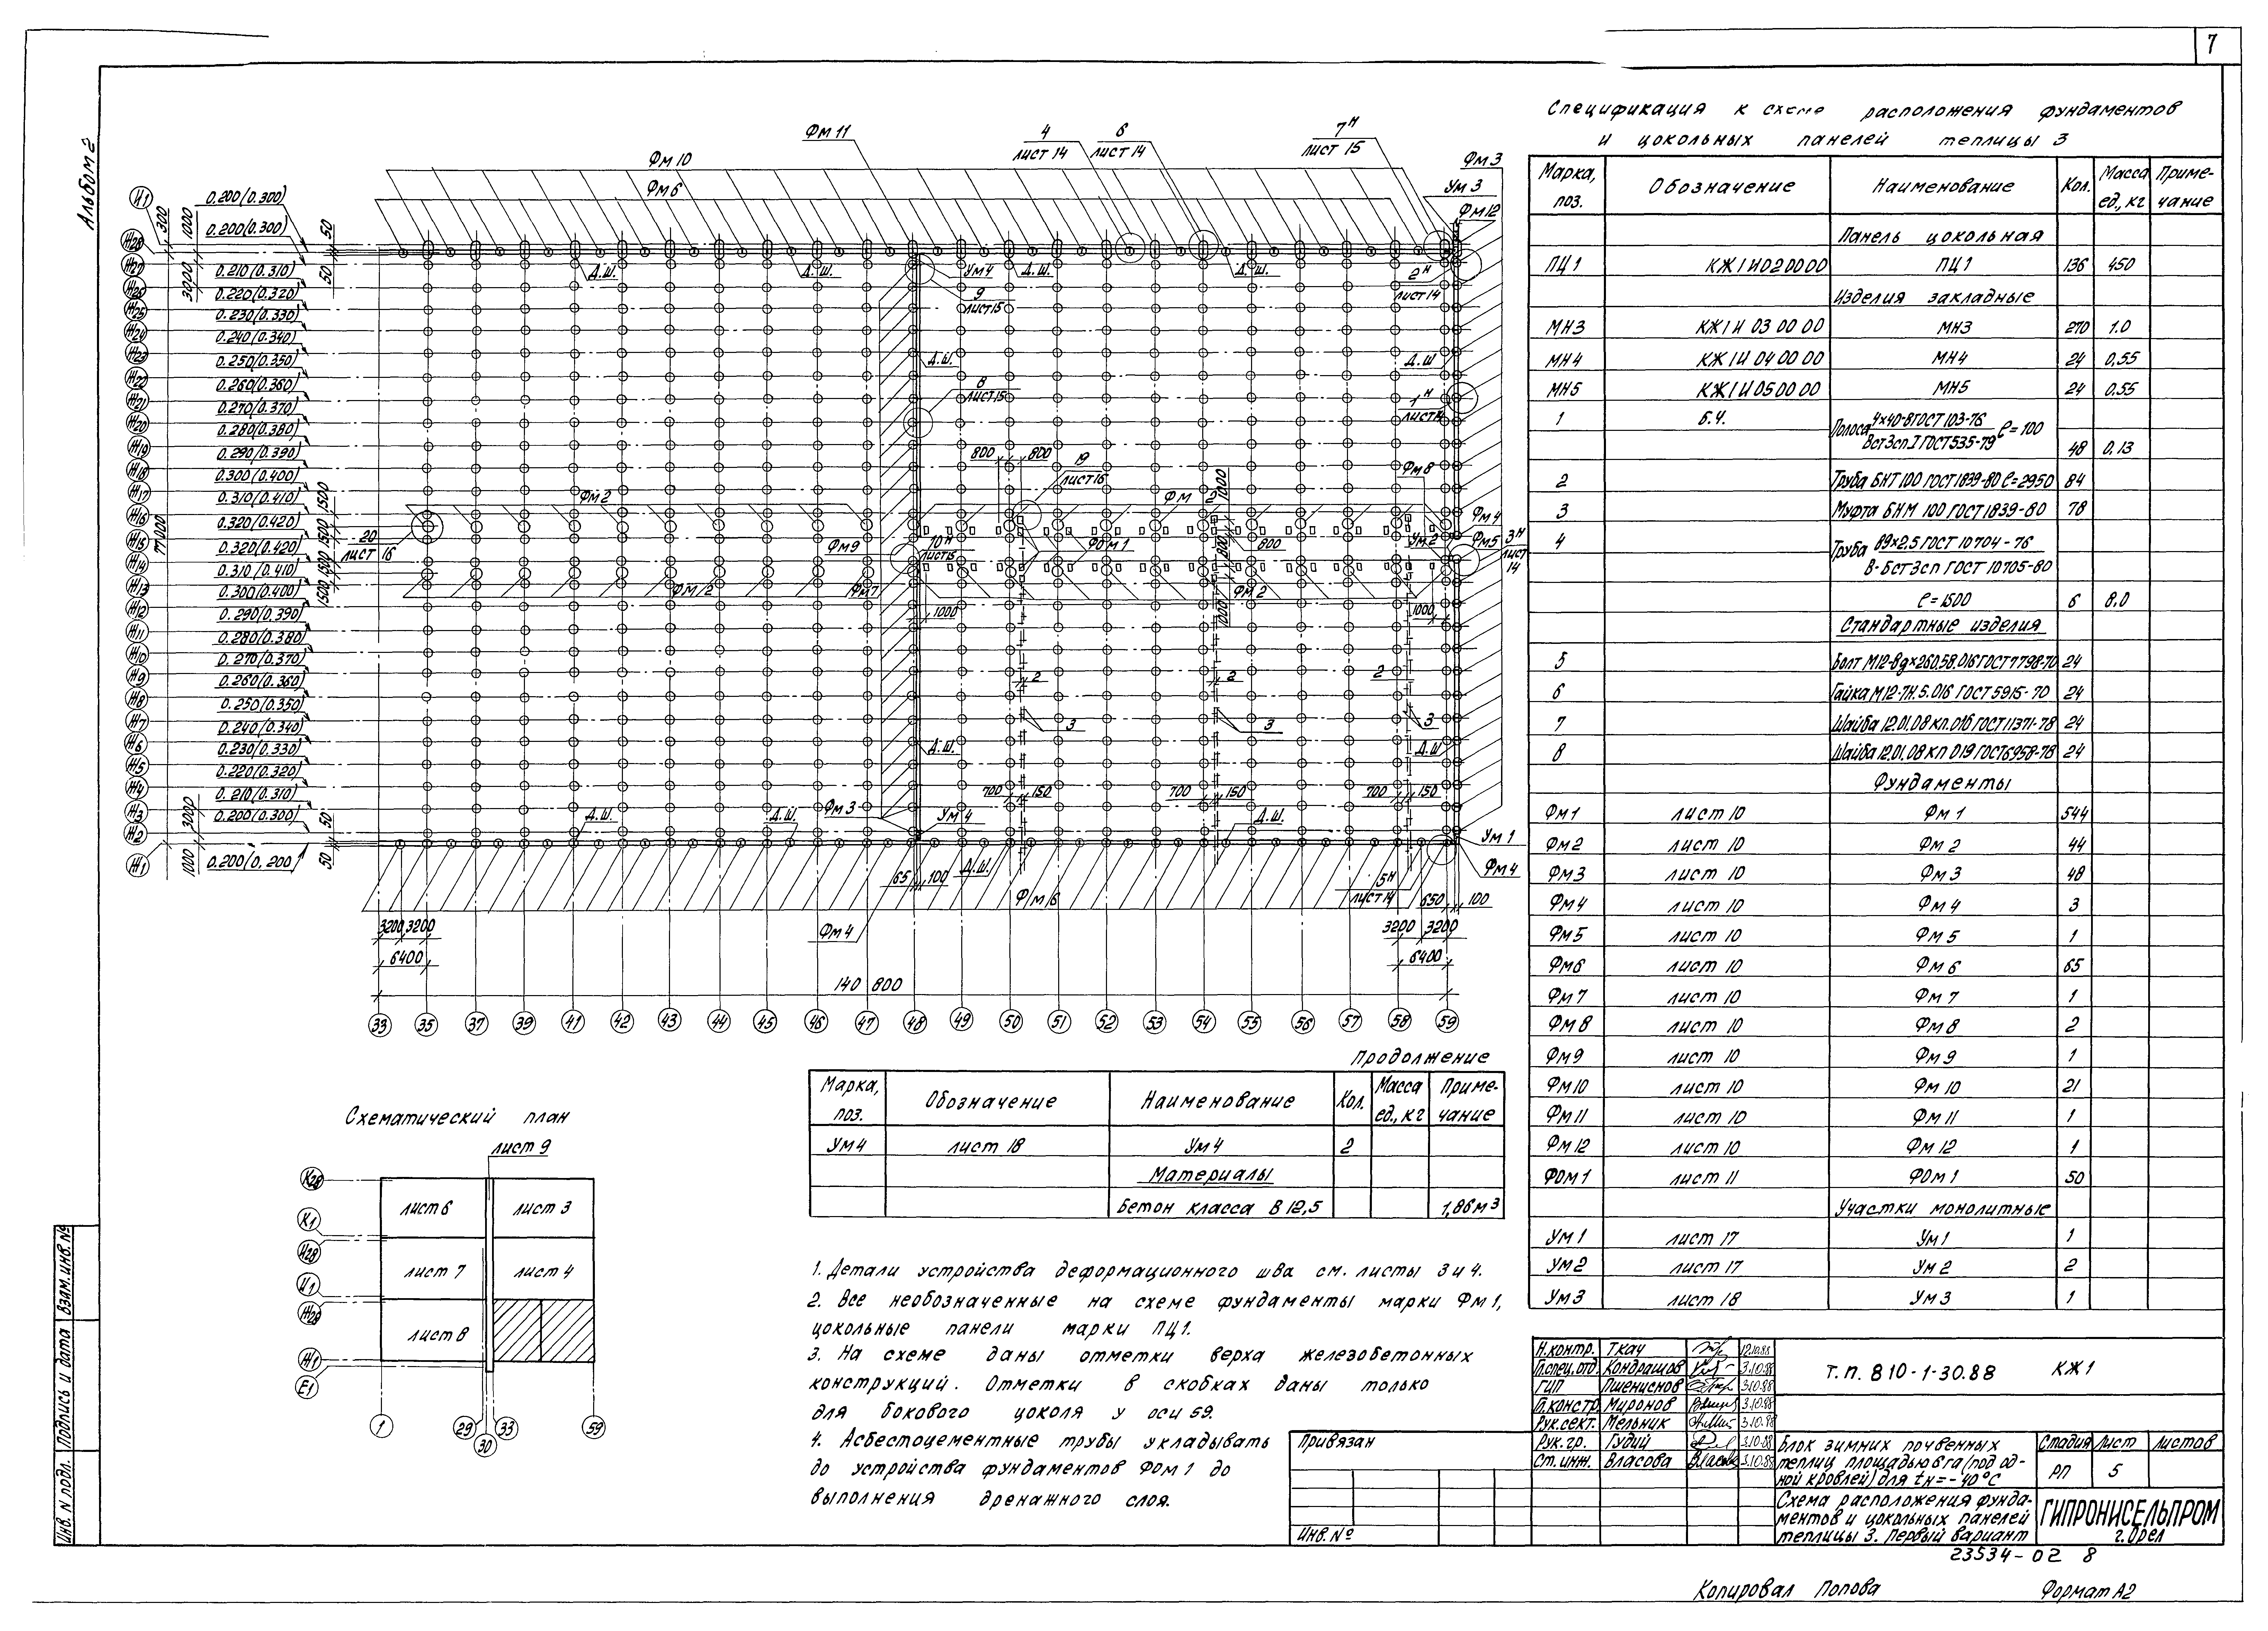 7
Альбом 2
Спецификация к схеме расположения фундаментов
и цокольных панелей теплицы 3
Марка, поз. Обозначение Наименование Кол. Масса ед., кг Приме-чание
Панель цокольная
ПЦ1 КЖ1И020000 ПЦ1 136 450
Изделия закладные
МН3 КЖ1И 03 00 00 МН3 270 1.0
МН4 КЖ1И 04 00 00 МН4 24 0,55
МН5 КЖ1И 05 00 00 МН5 24 0.55
1 б.ч. Полоса 4×40-8 ГОСТ 103-76 ℓ=100
Вст3сп.I ГОСТ535-79 48 0,13
2 Труба БНТ 100 ГОСТ 1839-80 ℓ=2950 84
3 Муфта БНМ 100 ГОСТ 1839-80 78
4 Труба 89×2,5 ГОСТ 10704-76
В-Бст3сп ГОСТ 10705-80
ℓ=1500 6 8,0
Стандартные изделия
5 Болт М12-8g×260.58.016 ГОСТ7798-70 24
6 Гайка М12-7Н.5.016 ГОСТ 5915-70 24
7 Шайба 12.01.08 кп.016 ГОСТ11371-78 24
8 Шайба 12.01.08 кп 019 ГОСТ6958-78 24
Фундаменты
Фм1 лист 10 Фм1 544
Фм2 лист 10 Фм2 44
Фм3 лист 10 Фм3 48
Фм4 лист 10 Фм4 3
Фм5 лист 10 Фм5 1
Фм6 лист 10 Фм6 65
Фм7 лист 10 Фм7 1
Фм8 лист 10 Фм8 2
Фм9 лист 10 Фм9 1
Фм10 лист 10 Фм10 21
Фм11 лист 10 Фм11 1
Фм12 лист 10 Фм12 1
ФОм1 лист 11 ФОм1 50
Участки монолитные
Ум1 лист 17 Ум1 1
Ум2 лист 17 Ум2 2
Ум3 лист 18 Ум3 1
Фм 11
4 лист 14
6 лист 14
7н лист 15
Фм 3
Фм 10
Ум 3
Фм 6
Фм12
И1 0.200(0.300)
Ж28 0.200(0.300)
Ж27 0.210(0.310)
Ж26 0.220(0.320)
Ж25 0.230(0.330)
Ж24 0.240(0.340)
Ж23 0.250(0.350)
Ж22 0.260(0.360)
Ж21 0.270(0.370)
Ж20 0.280(0.380)
Ж19 0.290(0.390)
Ж18 0.300(0.400)
Ж17 0.310(0.410)
Ж16 0.320(0.420)
Ж15 0.320(0.420)
Ж14 0.310(0.410)
Ж13 0.300(0.400)
Ж12 0.290(0.390)
Ж11 0.280(0.380)
Ж10 0.270(0.370)
Ж9 0.260(0.360)
Ж8 0.250(0.350)
Ж7 0.240(0.340)
Ж6 0.230(0.330)
Ж5 0.220(0.320)
Ж4 0.210(0.310)
Ж3 0.200(0.300)
Ж2
Ж1 0.200(0,200)
300 1000 3000 50 50
77000
1500 1500 1500 1500
1000 3000 50 50
Д.Ш. Д.Ш. Ум4 Д.Ш. Д.Ш. 2н лист 14
9 лист15
Д.Ш. Д.Ш
8 лист15
1н лист14
800 800
19 лист16
Фм8
Фм2 Фм2 1000
20 лист 16
Фм9
10н лист15
ФОм1 800 800 Ум2
Фм4
Фм5
3н лист 14
Фм2 Фм7 Фм2
1000 1000 1000
2 2 2
3 3 3
Д.Ш. Д.Ш
700 150 700 150 700 150
Фм3
Д.Ш. Д.Ш. Ум4 Д.Ш. Ум 1
65 100 Д.Ш.
5н лист14
Фм4
Фм6
650 100
3200 3200
6400
Фм4
3200 3200
6400
140 800
33 35 37 39 41 42 43 44 45 46 47 48 49 50 51 52 53 54 55 56 57 58 59
Продолжение
Марка, поз. Обозначение Наименование Кол. Масса ед., кг Приме-чание
Ум4 лист 18 Ум4 2
Материалы
Бетон класса В 12,5 1,86м3
Схематический план
лист 9
К28
лист 6 лист 3
К1
Ж28
лист 7 лист 4
И1
лист 8
Ж1
Е1
1 29 30 33 59
1. Детали устройства деформационного шва см. листы 3 и 4.
2. Все необозначенные на схеме фундаменты марки Фм1,
цокольные панели марки ПЦ1.
3. На схеме даны отметки верха железобетонных
конструкций. Отметки в скобках даны только
для бокового цоколя у оси 59.
4. Асбестоцементные трубы укладывать
до устройства фундаментов ФОм1 до
выполнения дренажного слоя.
Н.контр. Ткач 12.10.88
Гл.спец.отд. Кондрашов 3.10.88
ГИП Пшениснов 3.10.88
Гл.констр. Миронов 3.10.88
Рук.сект. Мельник 3.10.88
Рук.гр. Гудий 3.10.88
Ст.инж. Власова 3.10.88
т.п. 810-1-30.88 КЖ1
Блок зимних почвенных
теплиц площадью 6 га (под од-
ной кровлей) для tн=-40°С
Стадия Лист Листов
РП 5
Схема расположения фунда-
ментов и цокольных панелей
теплицы 3. Первый вариант
ГИПРОНИСЕЛЬПРОМ
г.Орел
Привязан
Инв.№
Инв. N подл. Подпись и дата Взам.инв.№
23534-02 8
Копировал Попова Формат А2